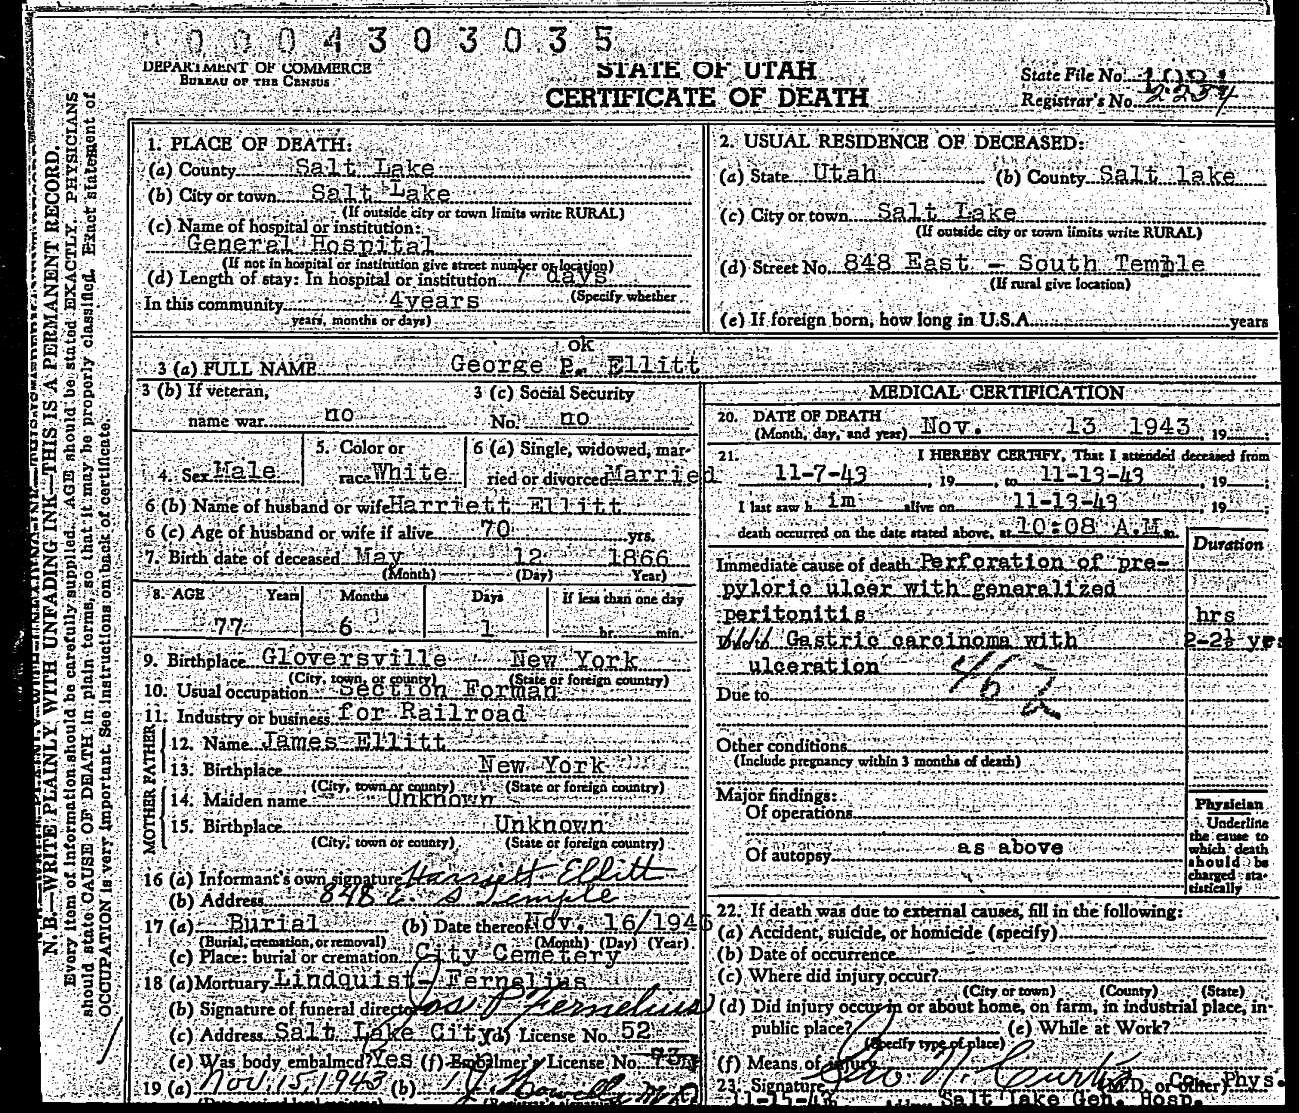 00004303035
DEPARTMENT OF COMMERCE
BUREAU OF THE CENSUS
STATE OF UTAH
CERTIFICATE OF DEATH
State File No.
Registrar's No. 2237
N. B.—WRITE PLAINLY WITH UNFADING INK—THIS IS A PERMANENT RECORD.
Every item of information should be carefully supplied. AGE should be stated EXACTLY. PHYSICIANS
should state CAUSE OF DEATH in plain terms, so that it may be properly classified. Exact statement of
OCCUPATION is very important. See instructions on back of certificate.
1. PLACE OF DEATH:
(a) County Salt Lake
(b) City or town Salt Lake
(If outside city or town limits write RURAL)
(c) Name of hospital or institution:
General Hospital
(If not in hospital or institution give street number or location)
(d) Length of stay: In hospital or institution 7 days
(Specify whether
In this community 4years
years, months or days)
2. USUAL RESIDENCE OF DECEASED:
(a) State Utah (b) County Salt lake
(c) City or town Salt Lake
(If outside city or town limits write RURAL)
(d) Street No. 848 East - South Temple
(If rural give location)
(e) If foreign born, how long in U.S.A. years
ok
3 (a) FULL NAME George P. Ellitt
3 (b) If veteran,
name war no
3 (c) Social Security
No. no
4. Sex Male
5. Color or
race White
6 (a) Single, widowed, mar-
ried or divorced Married
6 (b) Name of husband or wife Harriett Ellitt
6 (c) Age of husband or wife if alive 70 yrs.
7. Birth date of deceased May 12 1866
(Month) (Day) Year)
8. AGE Years Months Days If less than one day
77 6 1 hr. min.
9. Birthplace Gloversville New York
(City, town, or county) (State or foreign country)
10. Usual occupation Section Forman
11. Industry or business for Railroad
FATHER
12. Name James Ellitt
13. Birthplace New York
(City, town or county) (State or foreign country)
MOTHER
14. Maiden name Unknown
15. Birthplace Unknown
(City, town or county) (State or foreign country)
16 (a) Informant's own signature Harriett Ellitt
(b) Address 848 E. S Temple
17 (a) Burial (b) Date thereof Nov. 16/1943
(Burial, cremation, or removal) (Month) (Day) (Year)
(c) Place: burial or cremation City Cemetery
18 (a) Mortuary Lindquist- Fernelius
(b) Signature of funeral director Jos P Fernelius
(c) Address Salt Lake City (d) License No. 52
(e) Was body embalmed? Yes (f) Embalmer's License No.
19 (a) Nov. 15, 1943 (b)
MEDICAL CERTIFICATION
20. DATE OF DEATH
(Month, day, and year) Nov. 13 1943, 19
21. I HEREBY CERTIFY, That I attended deceased from
11-7-43, 19 , to 11-13-43, 19
I last saw h im alive on 11-13-43, 19
death occurred on the date stated above, at 10:08 A.M. m.
Duration
Immediate cause of death Perforation of pre-
pyloric ulcer with generalized
peritonitis hrs
Gastric carcinoma with 2-2½ yrs
ulceration
46
Due to
Other conditions
(Include pregnancy within 3 months of death)
Major findings:
Of operations
Of autopsy as above
Physician
Underline
the cause to
which death
should be
charged sta-
tistically
22. If death was due to external causes, fill in the following:
(a) Accident, suicide, or homicide (specify)
(b) Date of occurrence
(c) Where did injury occur?
(City or town) (County) (State)
(d) Did injury occur in or about home, on farm, in industrial place, in
public place? (e) While at Work?
(Specify type of place)
(f) Means of injury
23. Signature Geo N. Curtis (M.D. or other) Co. Phys.
11-15-43 Salt lake Gen. Hosp.